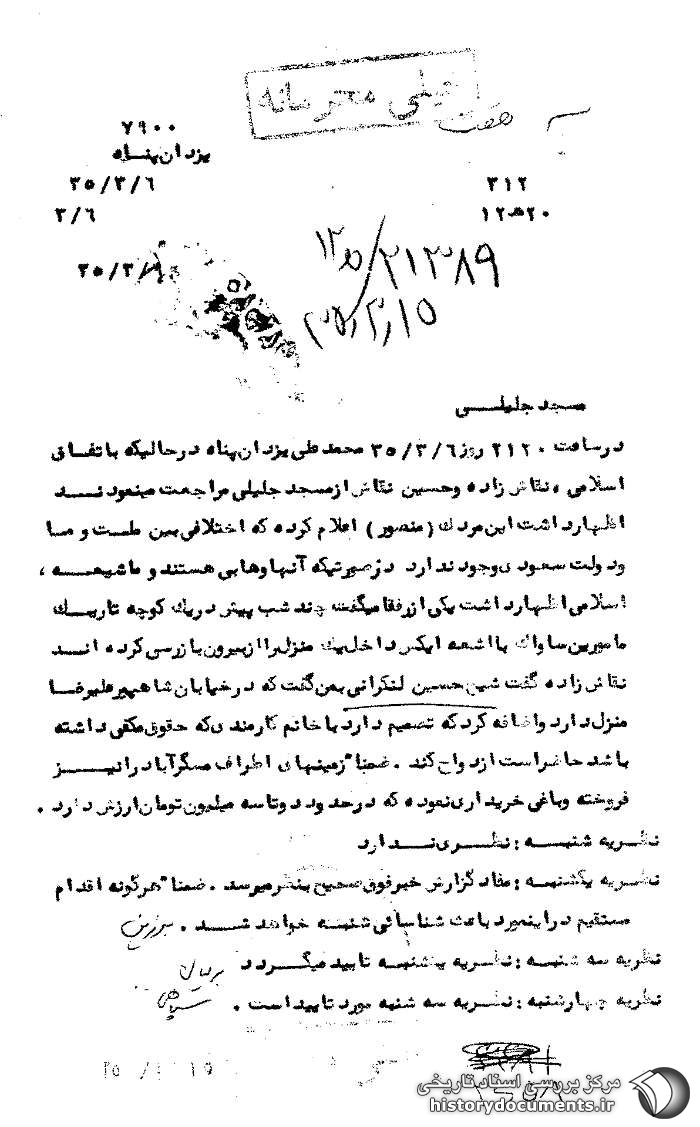 خیلی محرمانه
به هفت
۷۹۰۰
یزدان پناه
۳۱۲
۳۵/۳/۶
۱۲ﻫ۲۰
۳/۶
۳۵/۳/
۲۱۳۸۹/
۳۵/۳/۱۵
مسجد جلیلی
در ساعت ۲۱۲۰ روز ۳۵/۳/۶ محمدعلی یزدان پناه در حالیکه باتفاق
اسلامی ، نقاش زاده و حسین نقاش از مسجد جلیلی مراجعت مینمودند
اظهار داشت این مردك (منصور) اعلام کرده که اختلافی بین ملت و ما
و دولت سعودی وجود ندارد در صورتیکه آنها وهابی هستند و ما شیعه ،
اسلامی اظهار داشت یکی از رفقا میگفت چند شب پیش در یك کوچه تاریك
مامورین ساواك با اشعه ایکس داخل یك منزل را از بیرون بازرسی کرده اند
نقاش زاده گفت شیخ حسین لنکرانی بمن گفت که در خیابان شاهپور علیرضا
منزل دارد و اضافه کرد که تصمیم دارد با خانم کارمندی که حقوق مکفی داشته
باشد حاضر است ازدواج کند . ضمنا" زمینهای اطراف مسگرآباد را نیز
فروخته و باغی خریداری نموده که در حدود دو تا سه میلیون تومان ارزش دارد .
نظریه شنبه : نظری ندارد
نظریه یکشنبه : مفاد گزارش خبر فوق صحیح بنظر میرسد . ضمنا" هرگونه اقدام
مستقیم در اینمورد باعث شناسائی شنبه خواهد شد .
نظریه سه شنبه : نظریه یکشنبه تایید میگردد
نظریه چهارشنبه : نظریه سه شنبه مورد تایید است .
مرکز بررسی اسناد تاریخی
historydocuments.ir